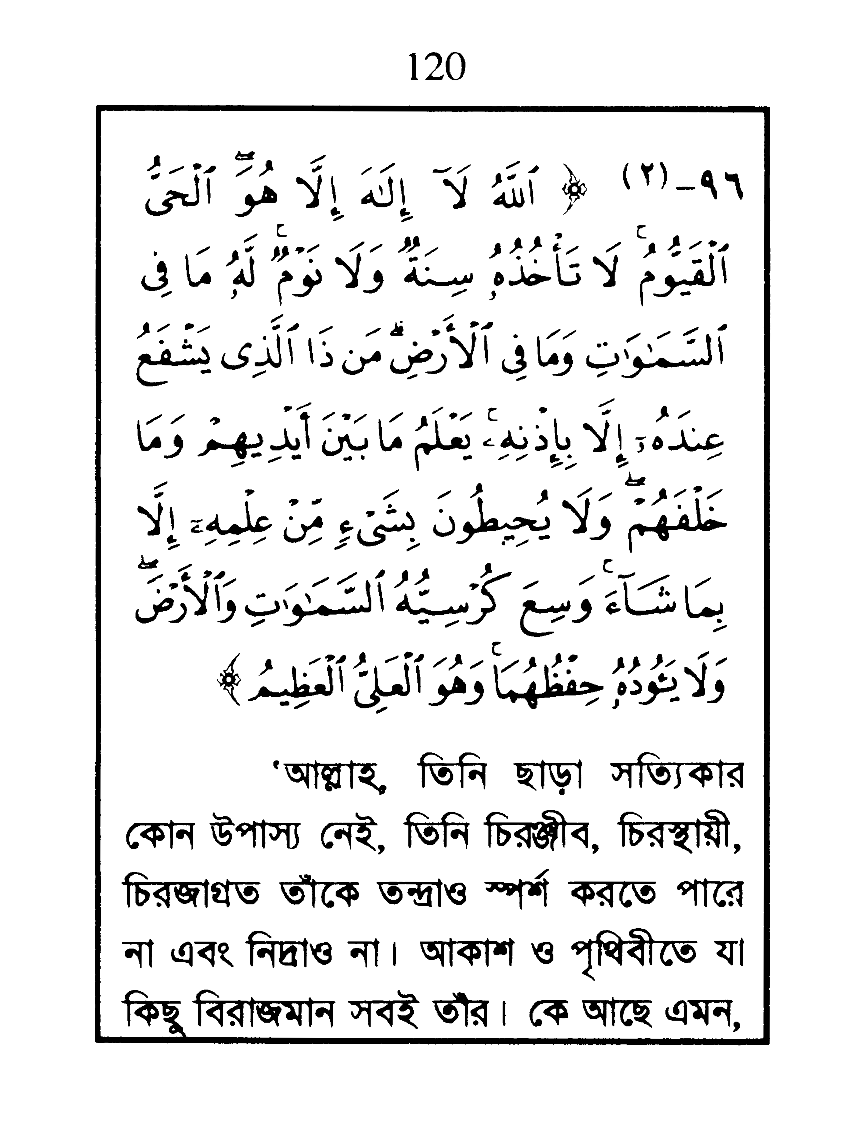 120
٩٦-(٢) ﴿ ٱللَّهُ لَآ إِلَٰهَ إِلَّا هُوَ ۖ ٱلْحَىُّ
ٱلْقَيُّومُ ۚ لَا تَأْخُذُهُۥ سِنَةٌ وَلَا نَوْمٌ ۚ لَّهُۥ مَا فِى
ٱلسَّمَٰوَٰتِ وَمَا فِى ٱلْأَرْضِ ۗ مَن ذَا ٱلَّذِى يَشْفَعُ
عِندَهُۥٓ إِلَّا بِإِذْنِهِۦ ۚ يَعْلَمُ مَا بَيْنَ أَيْدِيهِمْ وَمَا
خَلْفَهُمْ ۖ وَلَا يُحِيطُونَ بِشَىْءٍ مِّنْ عِلْمِهِۦٓ إِلَّا
بِمَا شَآءَ ۚ وَسِعَ كُرْسِيُّهُ ٱلسَّمَٰوَٰتِ وَٱلْأَرْضَ ۖ
وَلَا يَـُٔودُهُۥ حِفْظُهُمَا ۚ وَهُوَ ٱلْعَلِىُّ ٱلْعَظِيمُ ﴾
‘আল্লাহ, তিনি ছাড়া সত্যিকার
কোন উপাস্য নেই, তিনি চিরঞ্জীব, চিরস্থায়ী,
চিরজাগ্রত তাঁকে তন্দ্রাও স্পর্শ করতে পারে
না এবং নিদ্রাও না। আকাশ ও পৃথিবীতে যা
কিছু বিরাজমান সবই তাঁর। কে আছে এমন,